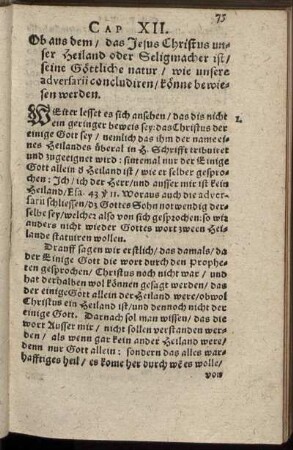 75
CAP XII.
Ob aus dem / das Jesus Christus un-
ser Heiland oder Seligmacher ist /
seine Göttliche natur / wie unsere
adversarii concludiren / könne bewie-
sen werden.
WEiter lesset es sich ansehen / das dis nicht 1.
ein geringer beweis sey: das Christus der
einige Gott sey / nemlich das ihm der name ei-
nes Heilandes überal in H. Schrifft tribuiret
und zugeeignet wird: sintemal nur der Einige
Gott allein d Heiland ist / wie er selber gespro-
chen: Ich / ich der Herr / und ausser mir ist kein
Heiland / Esa. 43 ℣ 11. Woraus auch die adver-
sarii schliessen / dz Gottes Sohn notwendig der-
selbe sey / welcher also von sich gesprochen: so wir
anders nicht wieder Gottes wort zween Hei-
lande statuiren wollen.
Drauff sagen wir erstlich / das damals / da
der Einige Gott die wort durch den Prophe-
ten gesprochen / Christus noch nicht war / und
hat derhalben wol können gesagt werden / das
der einige Gott allein der Heiland were / obwol
Christus ein Heiland ist / und dennoch nicht der
einige Gott. Darnach sol man wissen / das die
wort Ausser mir / nicht sollen verstanden wer-
den / als wenn gar kein ander Heiland were /
denn nur Gott allein: sondern das alles war-
hafftiges heil / es kome her durch wē es wolle /
von